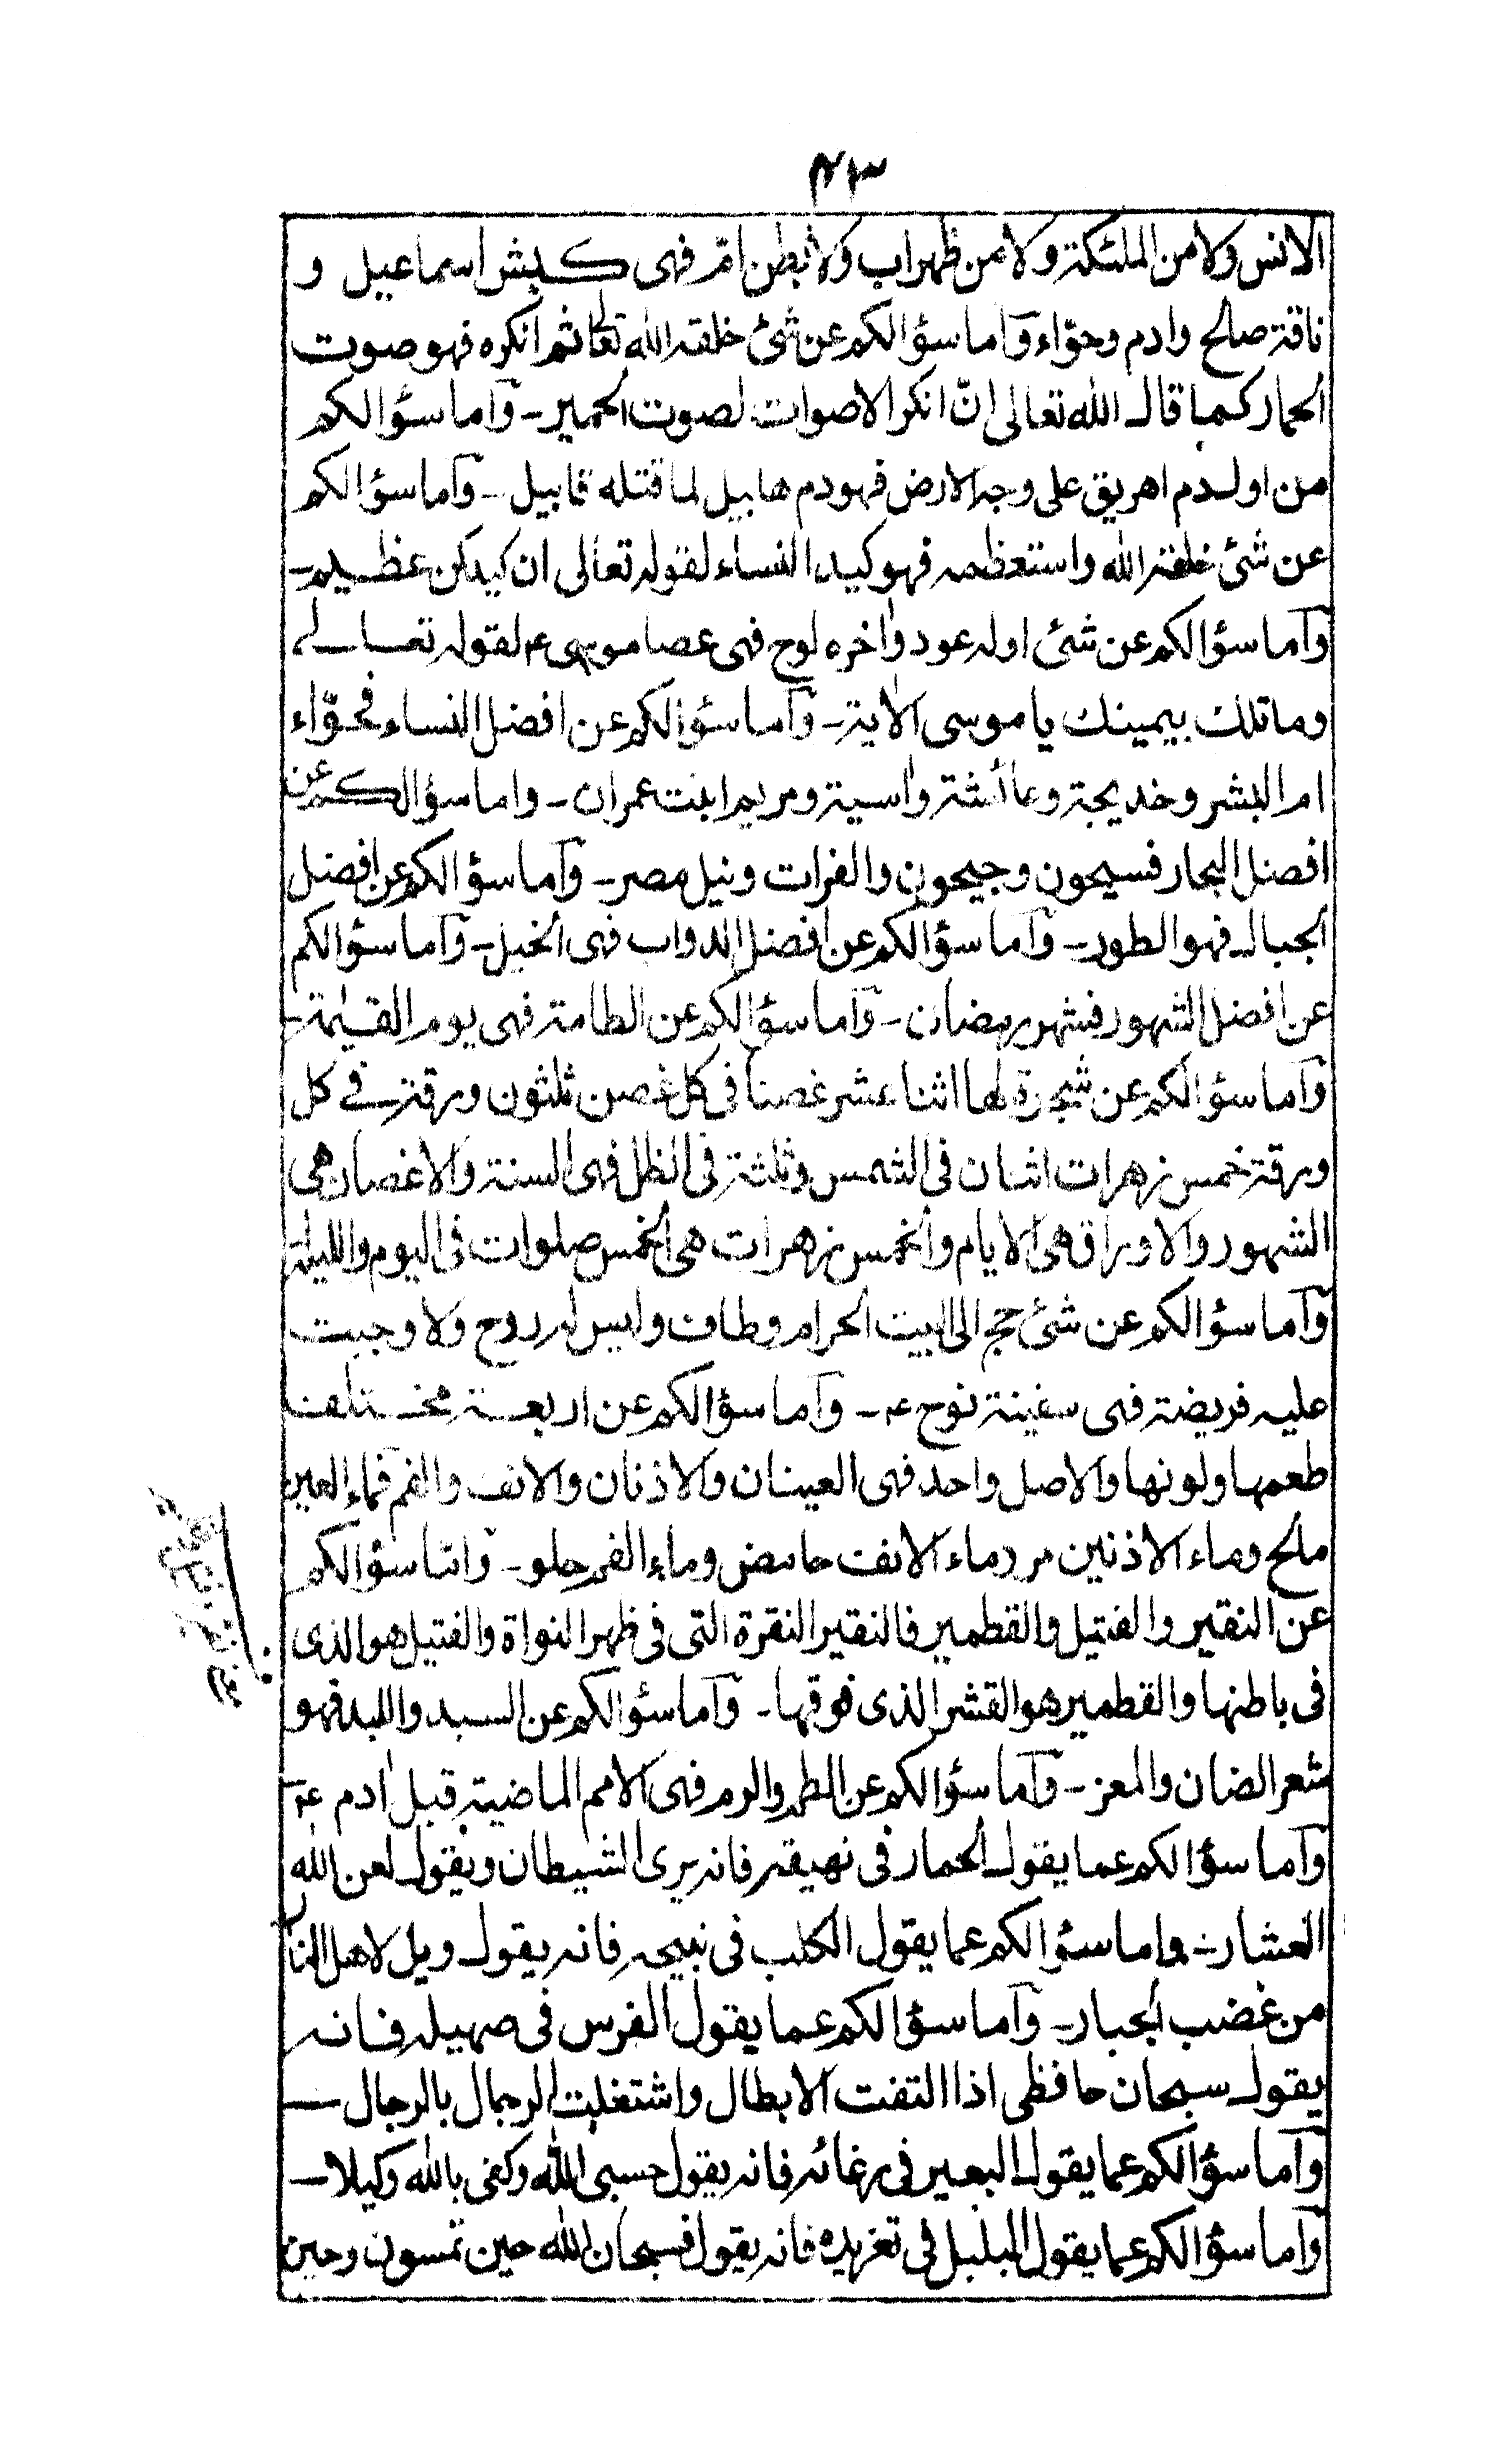 ٤٣
الانس ولا من الملئكة ولا من ظهر اب ولا بطن امّ فهى كبش اسماعيل و
ناقة صالح وادم وحوّاء وآما سؤالكم عن شئ خلقه الله تعالى ثم انكره فهو صوت
الحمار كما قال الله تعالى انّ انكر الاصوات لصوت الحمير - وآما سؤالكم
من اول دم اهريق على وجه الارض فهو دم هابيل لما قتله قابيل - وآما سؤالكم
عن شئ خلقه الله واستعظمه فهو كيد النساء لقوله تعالى ان كيدكن عظيم -
وآما سؤالكم عن شئ اوله عود واخره لوح فهى عصا موسى ع لقوله تعالى
وما تلك بيمينك يا موسى الاية - وآما سؤالكم عن افضل النساء فحوّاء
ام البشر وخديجة وعائشة واسية ومريم ابنت عمران - واما سؤالكم عن
افضل البحار فسيحون وجيحون والفرات ونيل مصر - وآما سؤالكم عن افضل
الجبال فهو الطور - وآما سؤالكم عن افضل الدواب فهى الخيل - وآما سؤالكم
عن افضل الشهور فشهر رمضان - وآما سؤالكم عن الطامة فهى يوم القيٰمة -
وآما سؤالكم عن شجرة لها اثنا عشر غصنا فى كل غصن ثلثون ورقة فے كل
ورقة خمس زهرات اثنان فى الشمس وثلثة فى الظل فهى السنة والاغصان هى
الشهور والاوراق هى الايام والخمس زهرات هى الخمس صلوات فى اليوم والليلة
وآما سؤالكم عن شئ حج الى البيت الحرام وطاف وليس له روح ولا وجبت
عليه فريضة فهى سفينة نوح ع - وآما سؤالكم عن اربعة مختلف
طعمها ولونها والاصل واحد فهى العينان والاذنان والانف والفم فماء العين
مالح وماء الاذنين مر وماء الانف حامض وماء الفم حلو - وامّا سؤالكم
عن النقير والفتيل والقطمير فالنقير النقرة التى فى ظهر النواة والفتيل هو الذى
فى باطنها والقطمير هو القشر الذى فوقها - وآما سؤالكم عن السبد واللبد فهو
شعر الضان والمعز - وآما سؤالكم عن الطم والرم فهى الامم الماضية قبل ادم ع
وآما سؤالكم عما يقول الحمار فى نهيقه فانه يرى الشيطان ويقول لعن الله
العشار - واما سؤالكم عما يقول الكلب فى نبيحه فانه يقول ويل لاهل النار
من غضب الجبار - وآما سؤالكم عما يقول الفرس فى صهيله فانه
يقول سبحان حافظى اذا التفت الابطال واشتغلت الرجال بالرجال -
وآما سؤالكم عما يقول البعير فى رغائه فانه يقول حسبى الله وكفى بالله وكيلا -
وآما سؤالكم عما يقول البلبل فى تغريده فانه يقول فسبحان الله حين تمسون وحين